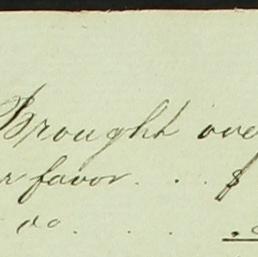 Brought over
r favor . . $
do . . .